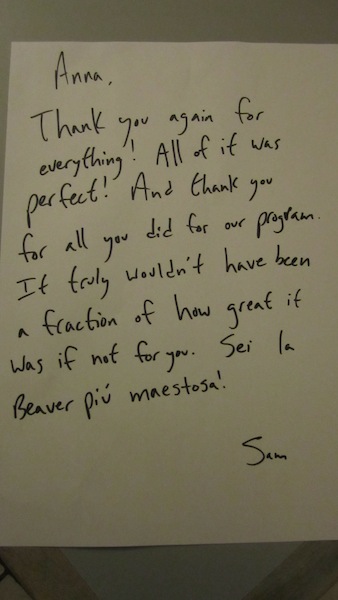 Anna,
Thank you again for
everything! All of it was
perfect! And thank you
for all you did for our program.
It truly wouldn't have been
a fraction of how great it
was if not for you. Sei la
Beaver più maestosa!
Sam